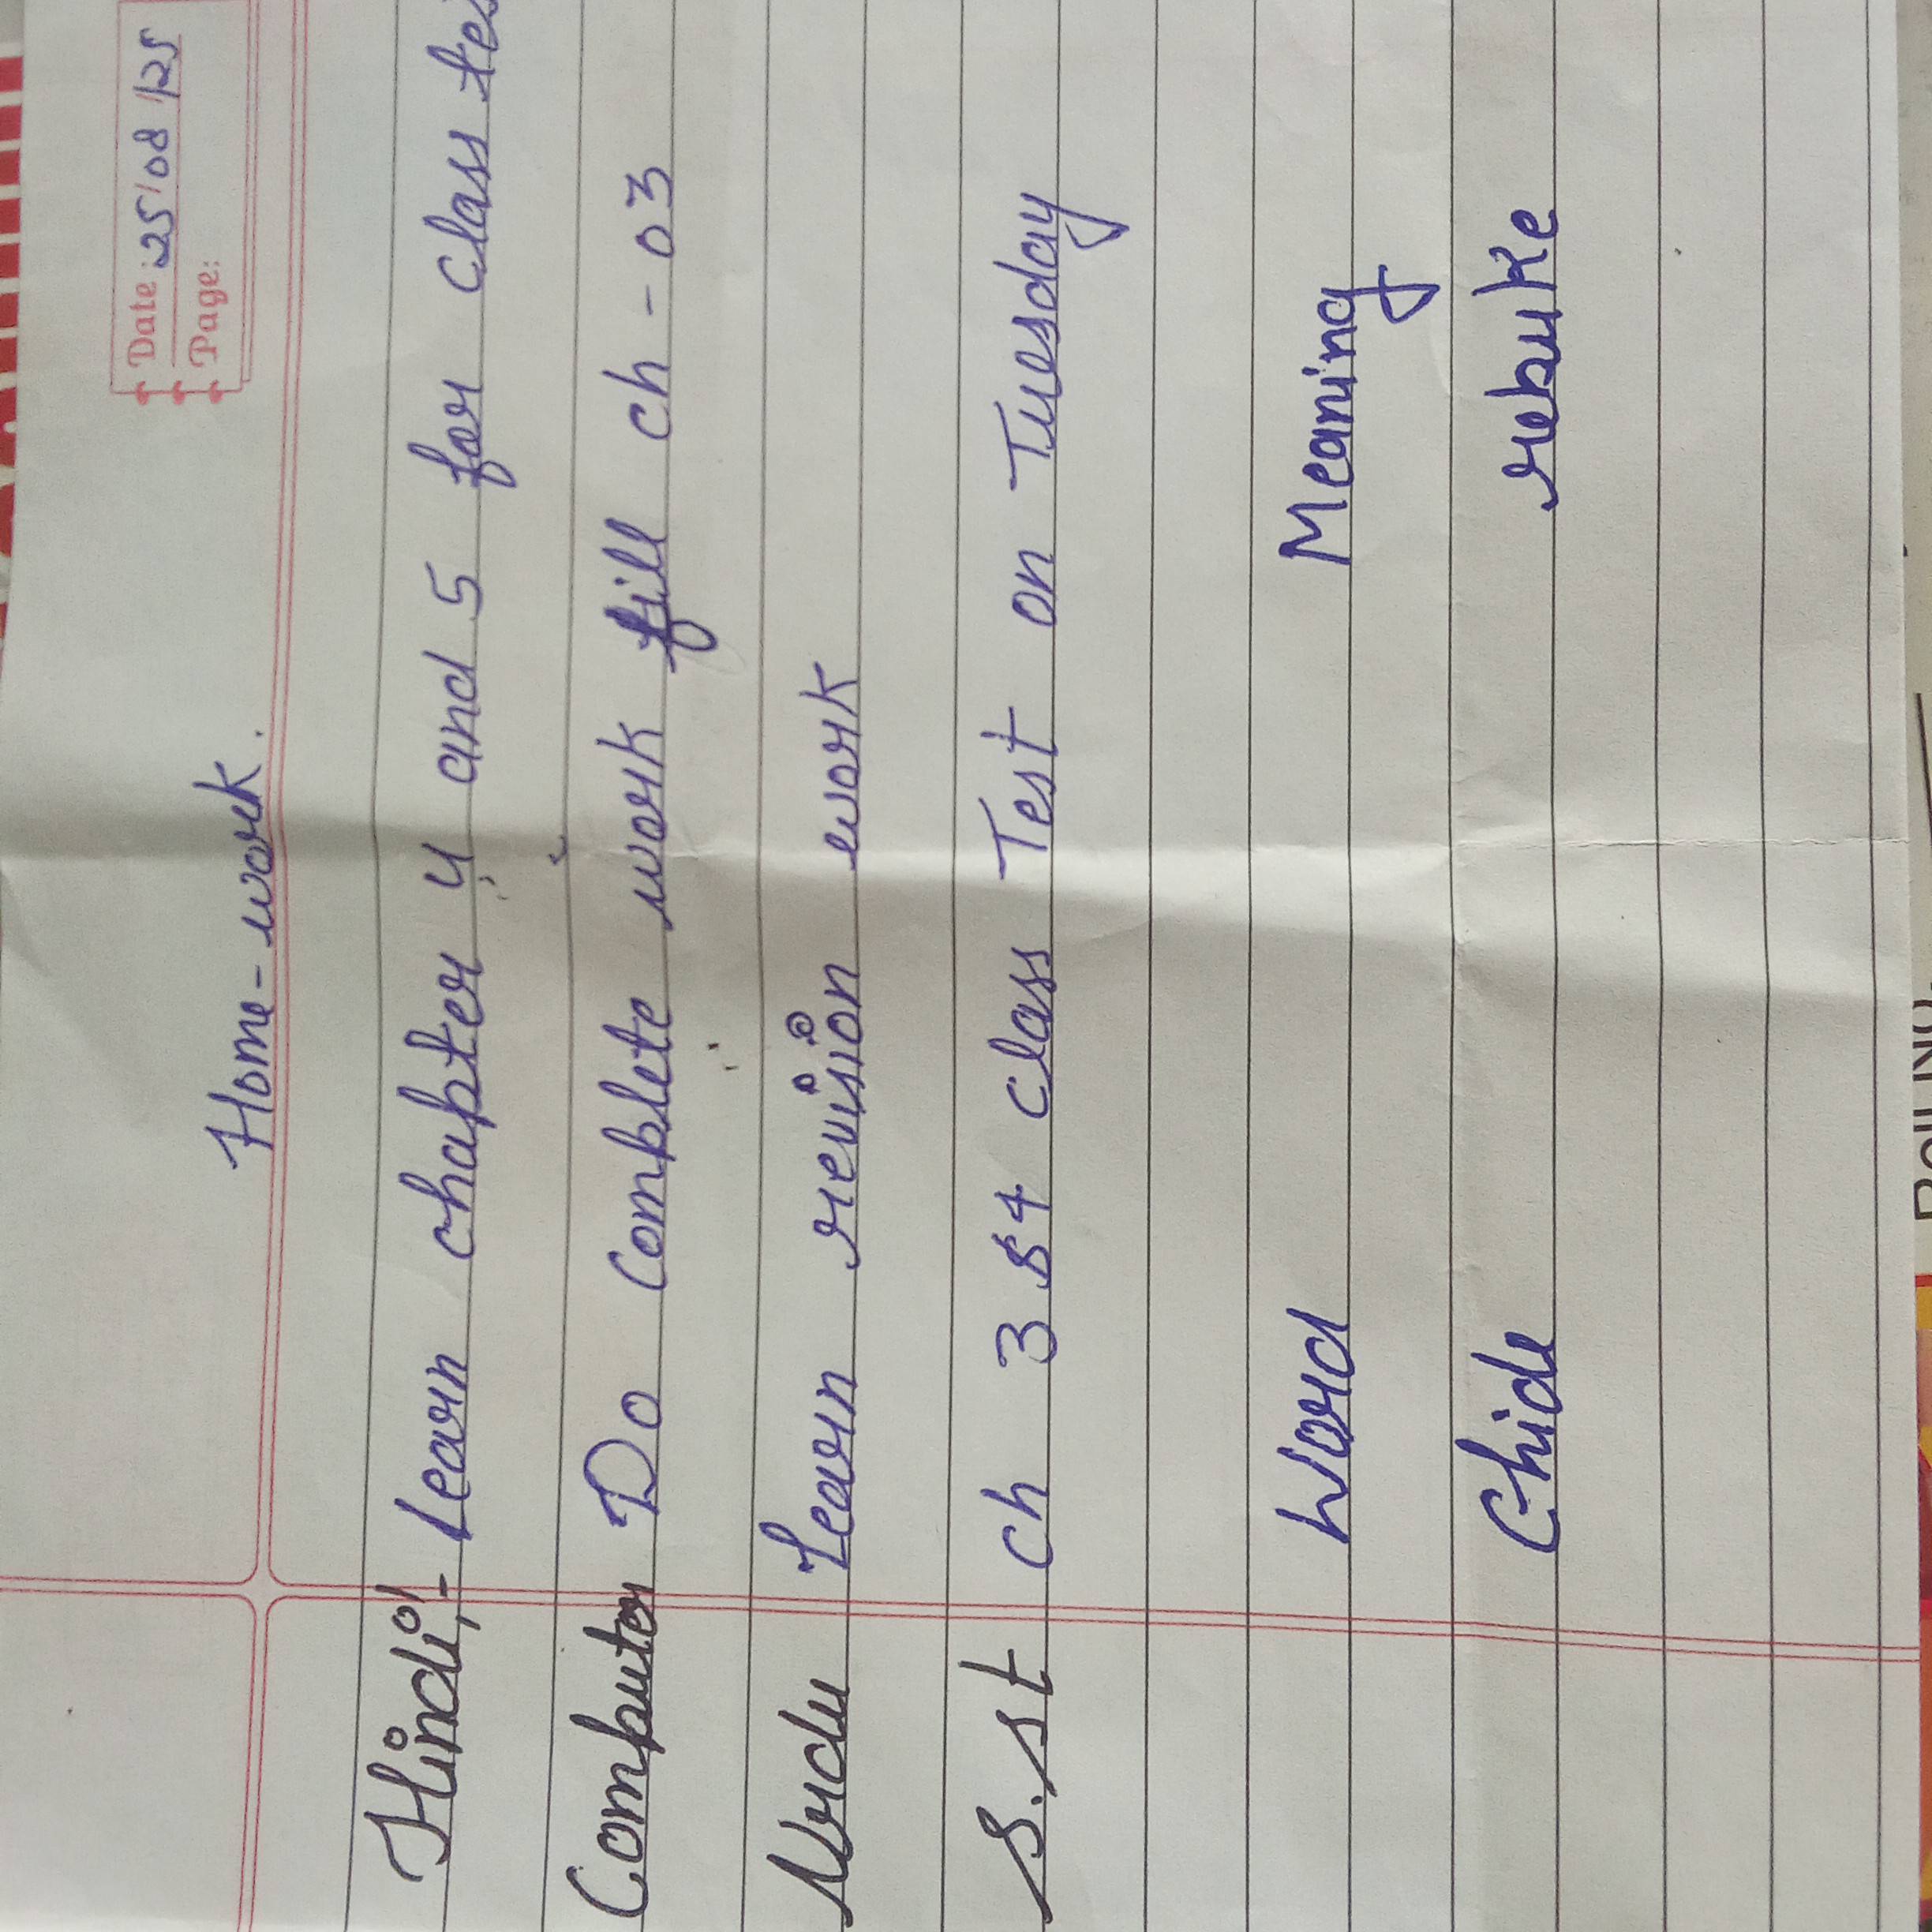 Date: 25/08/25
Page:
Home-work.
Hindi:- Learn chapter 4 and 5 for class tes
Computer Do Complete work fill ch-03
Urdu Learn revision work
S.st ch 3 & 4 class Test on Tuesday
Word Meaning
Chide rebuke
Roll No.